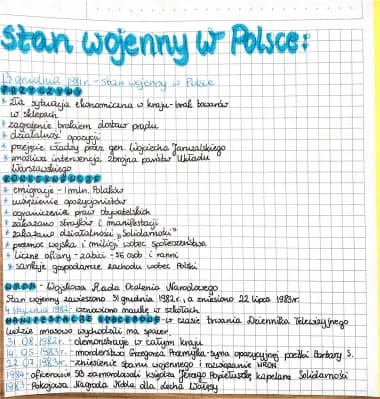 Stan wojenny w Polsce:
13 grudnia 1981r. - Stan wojenny w Polsce
PRZYCZYNY
* zła sytuacja ekonomiczna w kraju - brak towarów
w sklepach
* zagrożenie brakiem dostaw prądu
* działalność opozycji
* przejęcie władzy przez gen. Wojciecha Jaruzelskiego
* możliwa interwencja zbrojna państw Układu
Warszawskiego
KONSEKWENCJE
* emigracje - 1 mln. Polaków
* uwięzienie opozycjonistów
* ograniczenie praw obywatelskich
* zakazano strajków i manifestacji
* zakazano działalności „Solidarności"
* przemoc wojska i milicji wobec społeczeństwa
* liczne ofiary - zabici - 56 osób i ranni
* sankcje gospodarcze zachodu wobec Polski
WRON - Wojskowa Rada Ocalenia Narodowego
Stan wojenny zawieszono 31 grudnia 1982r., a zniesiono 22 lipca 1983r.
4 stycznia 1982r. wznowiono naukę w szkołach
MANIFESTACJE SPACEROWE - w czasie trwania Dziennika Telewizyjnego
ludzie masowo wychodzili na spacer.
31.08.1982r. - demonstracje w całym kraju
14.05.1983r. - morderstwo Grzegorza Przemyka - syna opozycyjnej poetki Barbary S.
22.07.1983r. - zniesienie stanu wojennego i rozwiązanie WRON
1984 - oficerowie SB zamordowali księdza Jerzego Popiełuszkę kapelana Solidarności
1983 - Pokojowa Nagroda Nobla dla Lecha Wałęsy